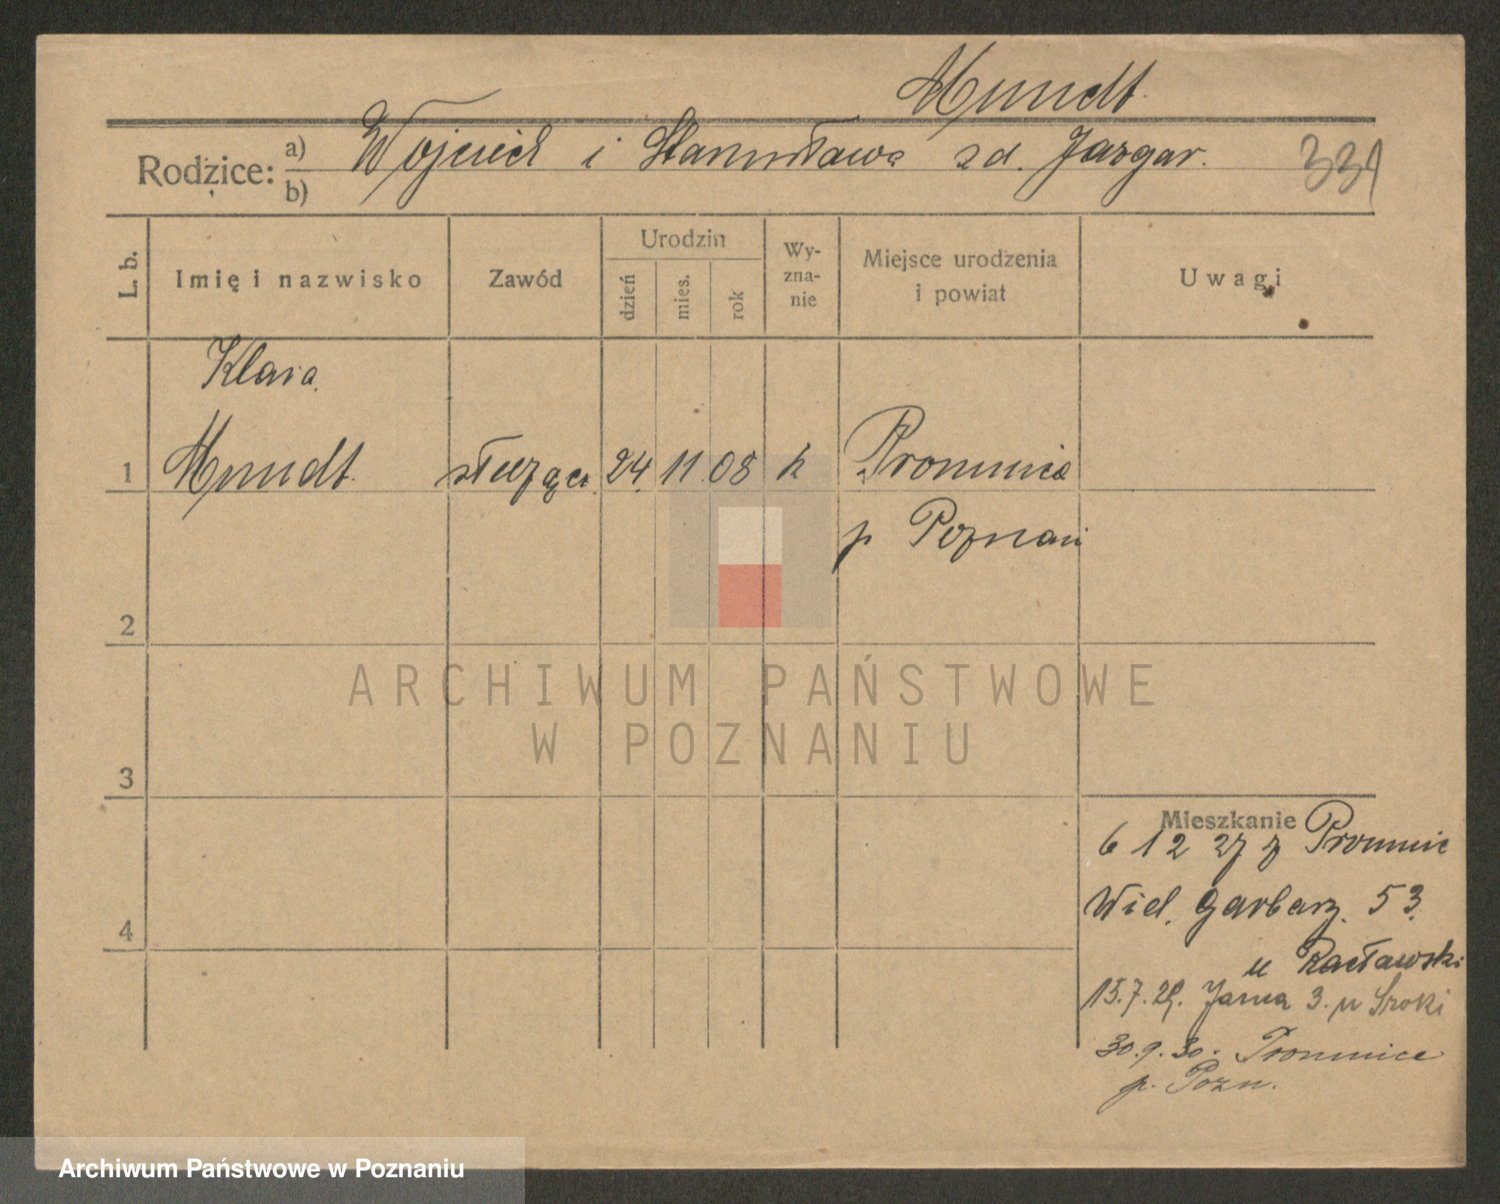 Mundt.
Rodzice: a) b) Wojciech i Stanisława zd. Jazgar. 331
L. b. Imię i nazwisko Zawód Urodzin dzień mies. rok Wy-zna-nie Miejsce urodzenia i powiat Uwagi
Klara
1 Mundt. służąca. 24. 11 08 k Promnice
p Poznań
2
3
4
Mieszkanie
6 12 27 z Promnic
Wiel. Garbarz. 53.
u Racławski
15.7.29. Jasna 3. u Sroki
30.9.30. Promnice
p. Pozn.
ARCHIWUM PAŃSTWOWE
W POZNANIU
Archiwum Państwowe w Poznaniu